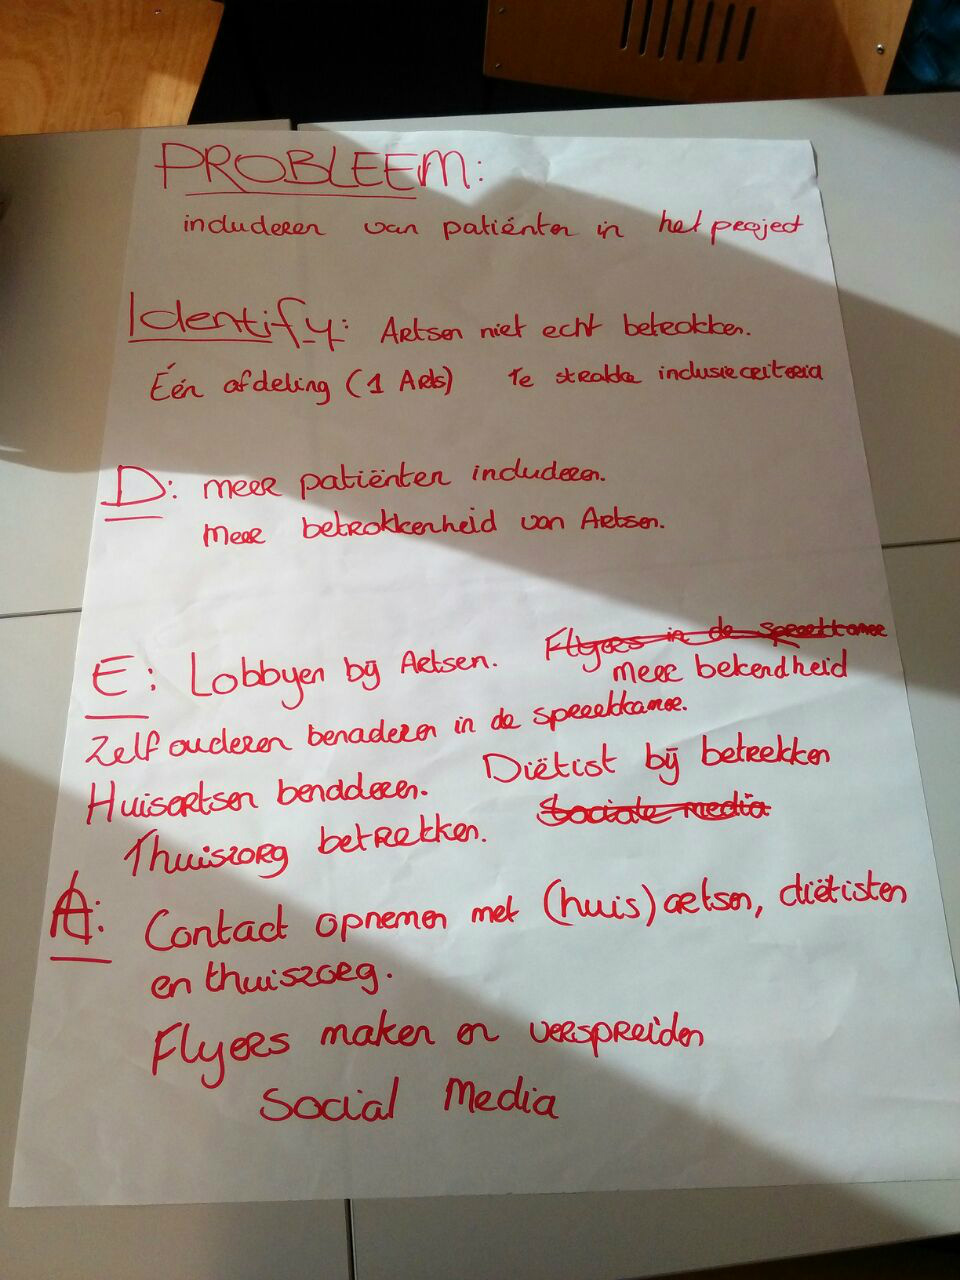 PROBLEEM:
includeren van patiënten in het project
Identify: Artsen niet echt betrokken.
Één afdeling (1 Arts) Te strakke inclusiecriteria
D: meer patiënten includeren.
Meer betrokkenheid van Artsen.
E: Lobbyen bij Artsen. Flyers in de spreekkamer
meer bekendheid
Zelf ouderen benaderen in de spreekkamer.
Huisartsen benaderen. Diëtist bij betrekken
Thuiszorg betrekken. Sociale media
A: Contact opnemen met (huis)artsen, diëtisten
en thuiszorg.
Flyers maken en verspreiden
Social Media